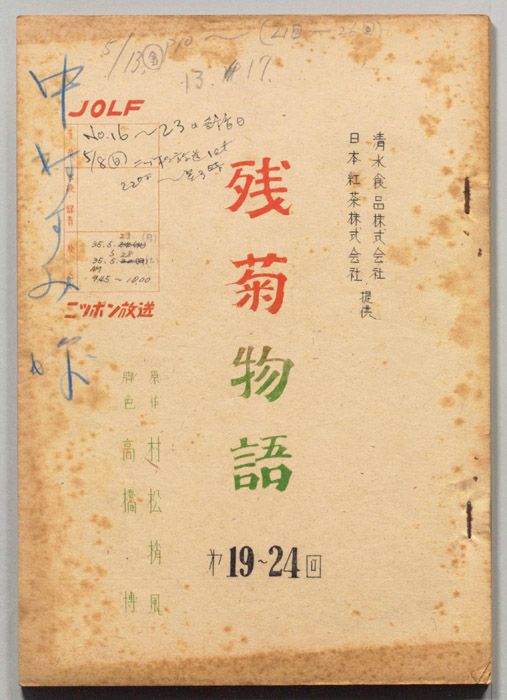 5/13㊎ P10 〜 (21回-26回)
JOLF
No.16〜23の録音日
5/8(日) ニッポン放送1st
35.5.23(月)
35.5.28
AM
9.45 〜 10.00
ニッポン放送
清水食品株式会社
日本紅茶株式会社 提供
残菊物語
原作 村松梢風
脚色 高橋 博
才19~24回